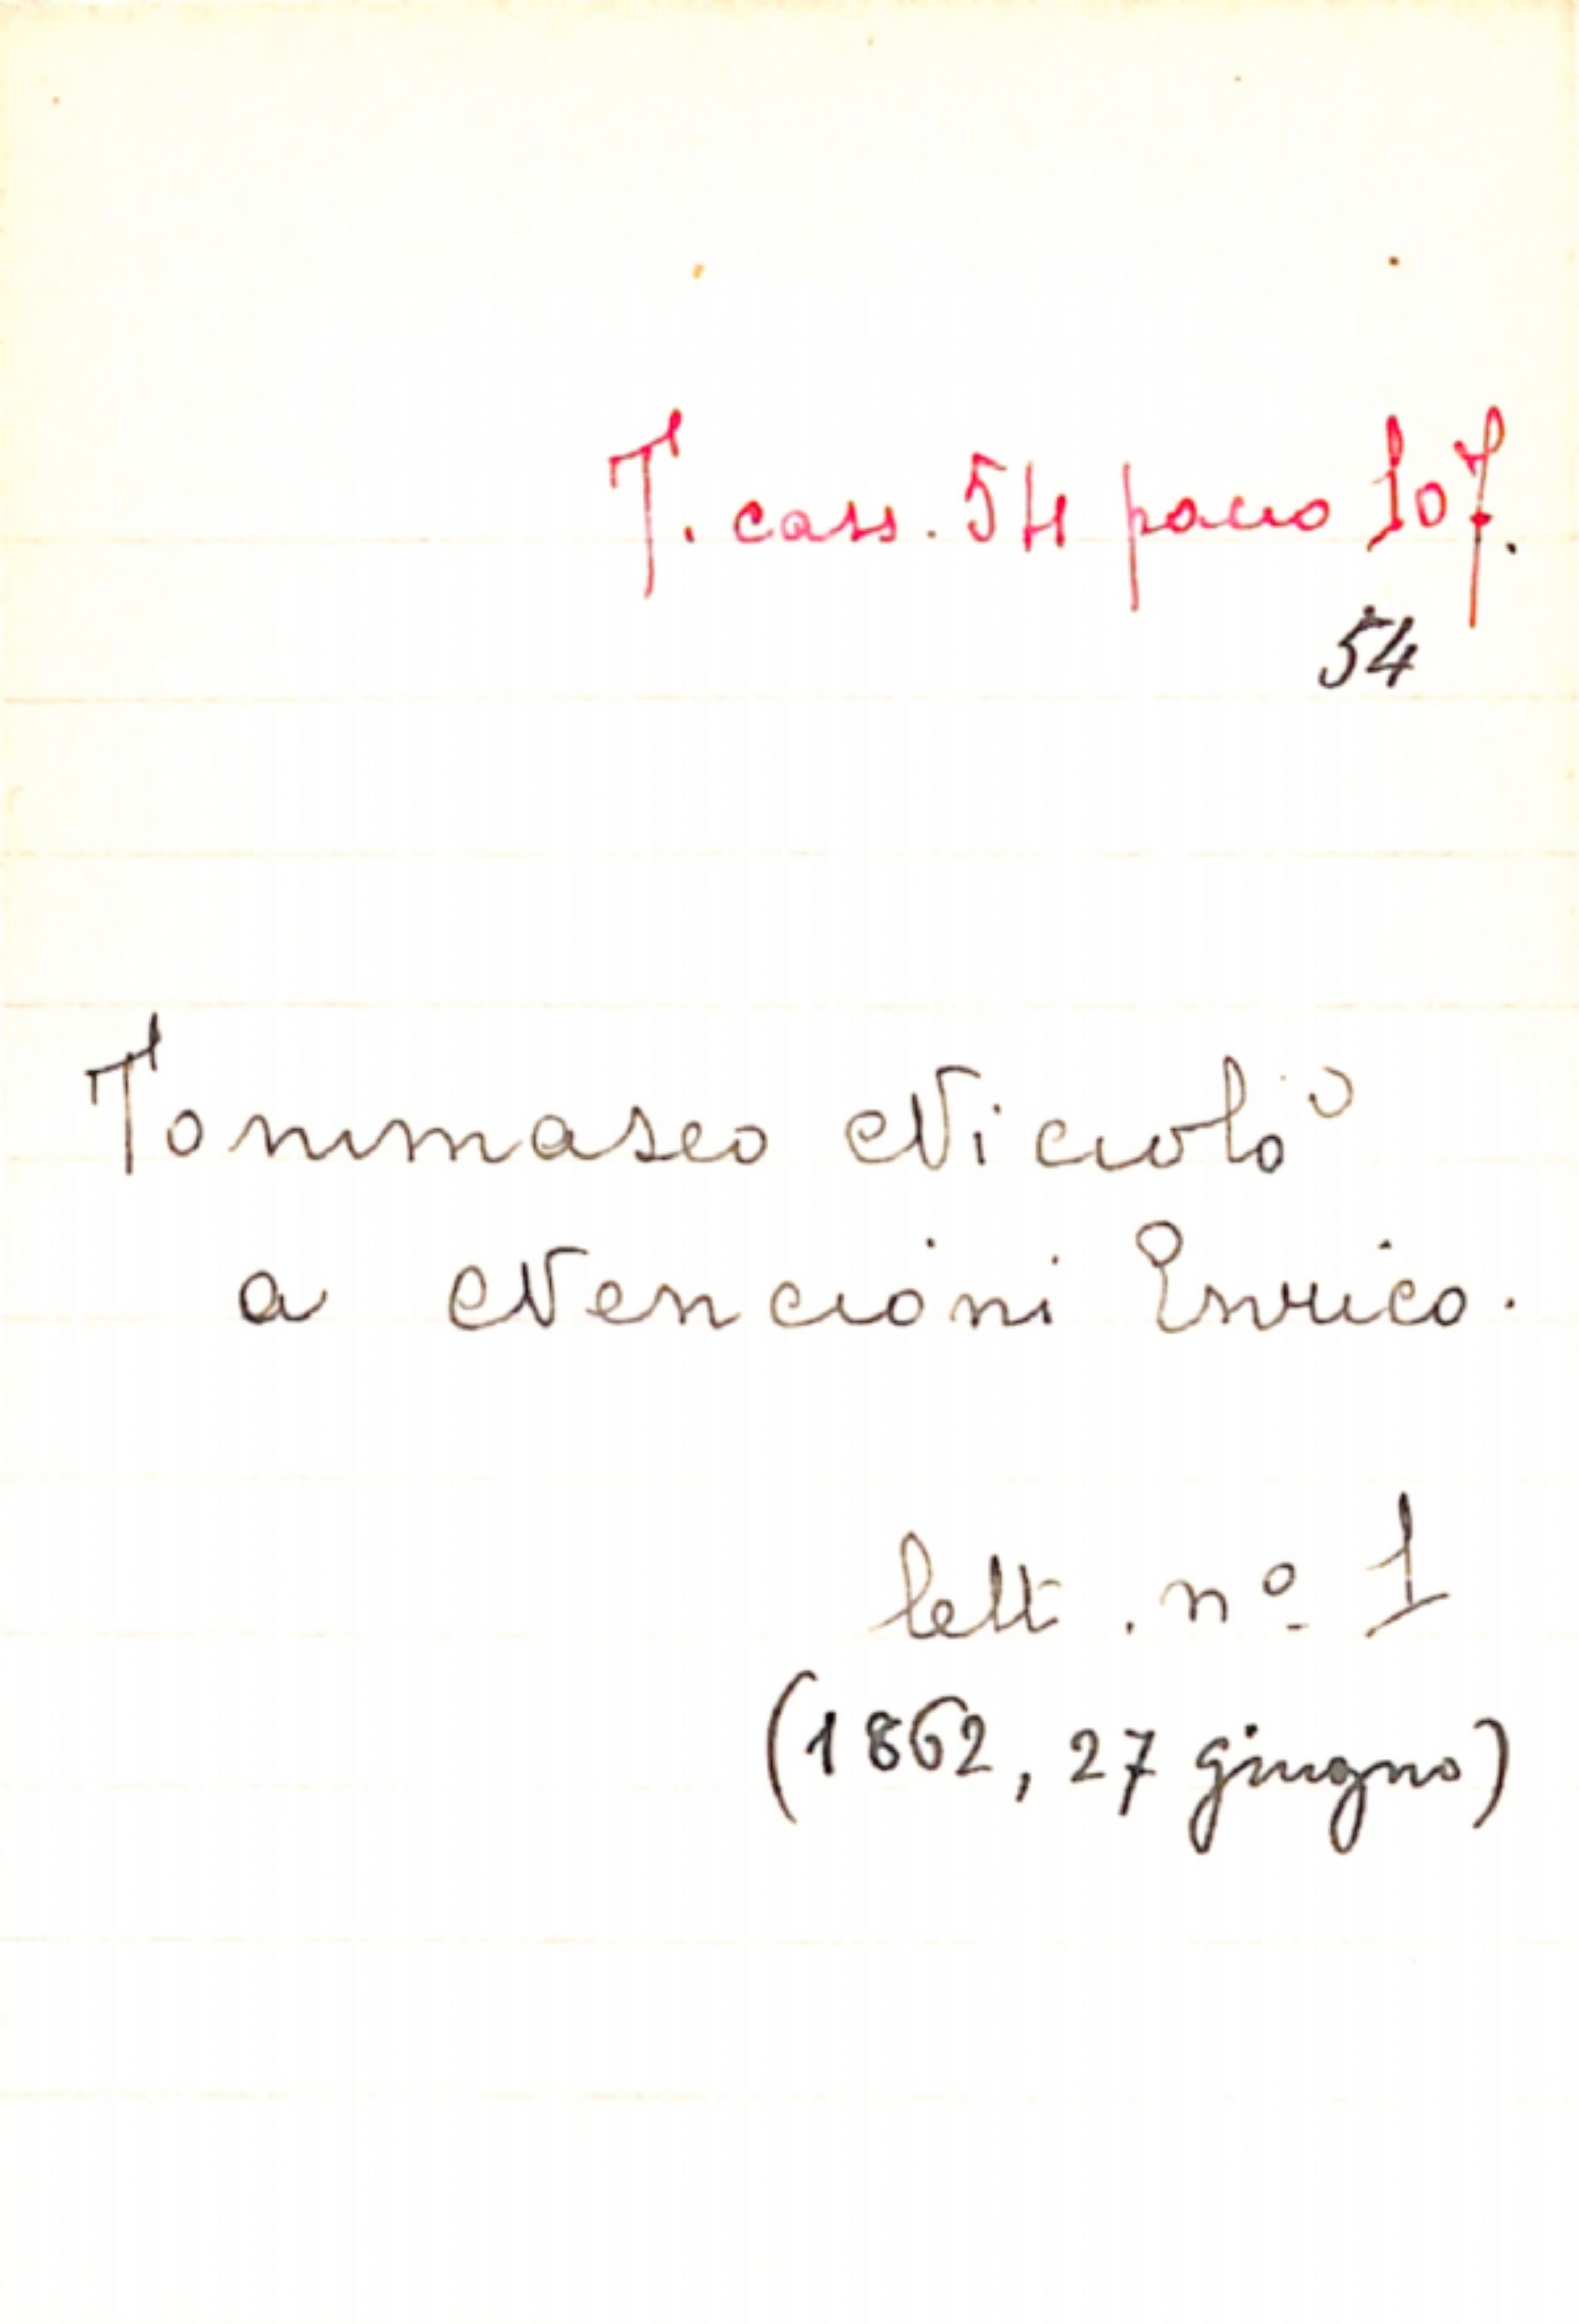 T. cass. 54 pacco 107.
54
Tommaseo Niccolò
a Nencioni Enrico.
lett. nº 1
(1862, 27 giugno)